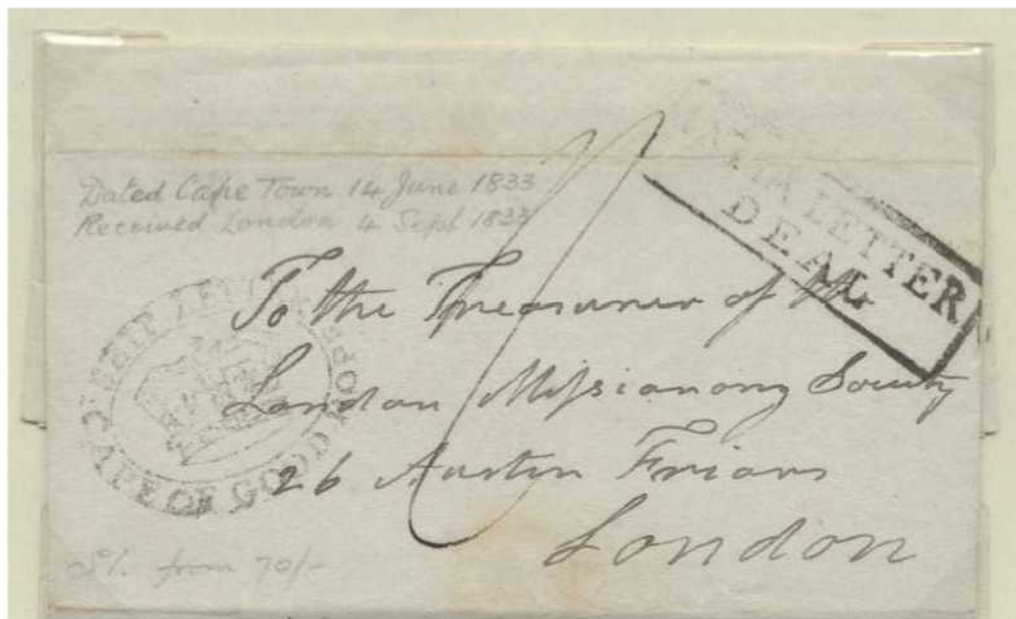 Dated Cape Town 14 June 1833
Received London 4 Sept 1833
LETTER
DEAL
To the Treasurer of the
London Missionary Society
26 Austin Friars
London
SHIP LETTER
CAPE OF GOOD HOPE
from 70/-